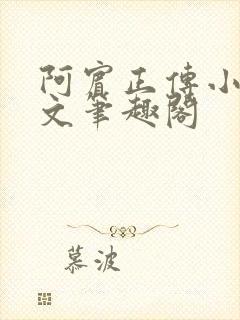 阿賓正傳小
文筆趣閣
慕波